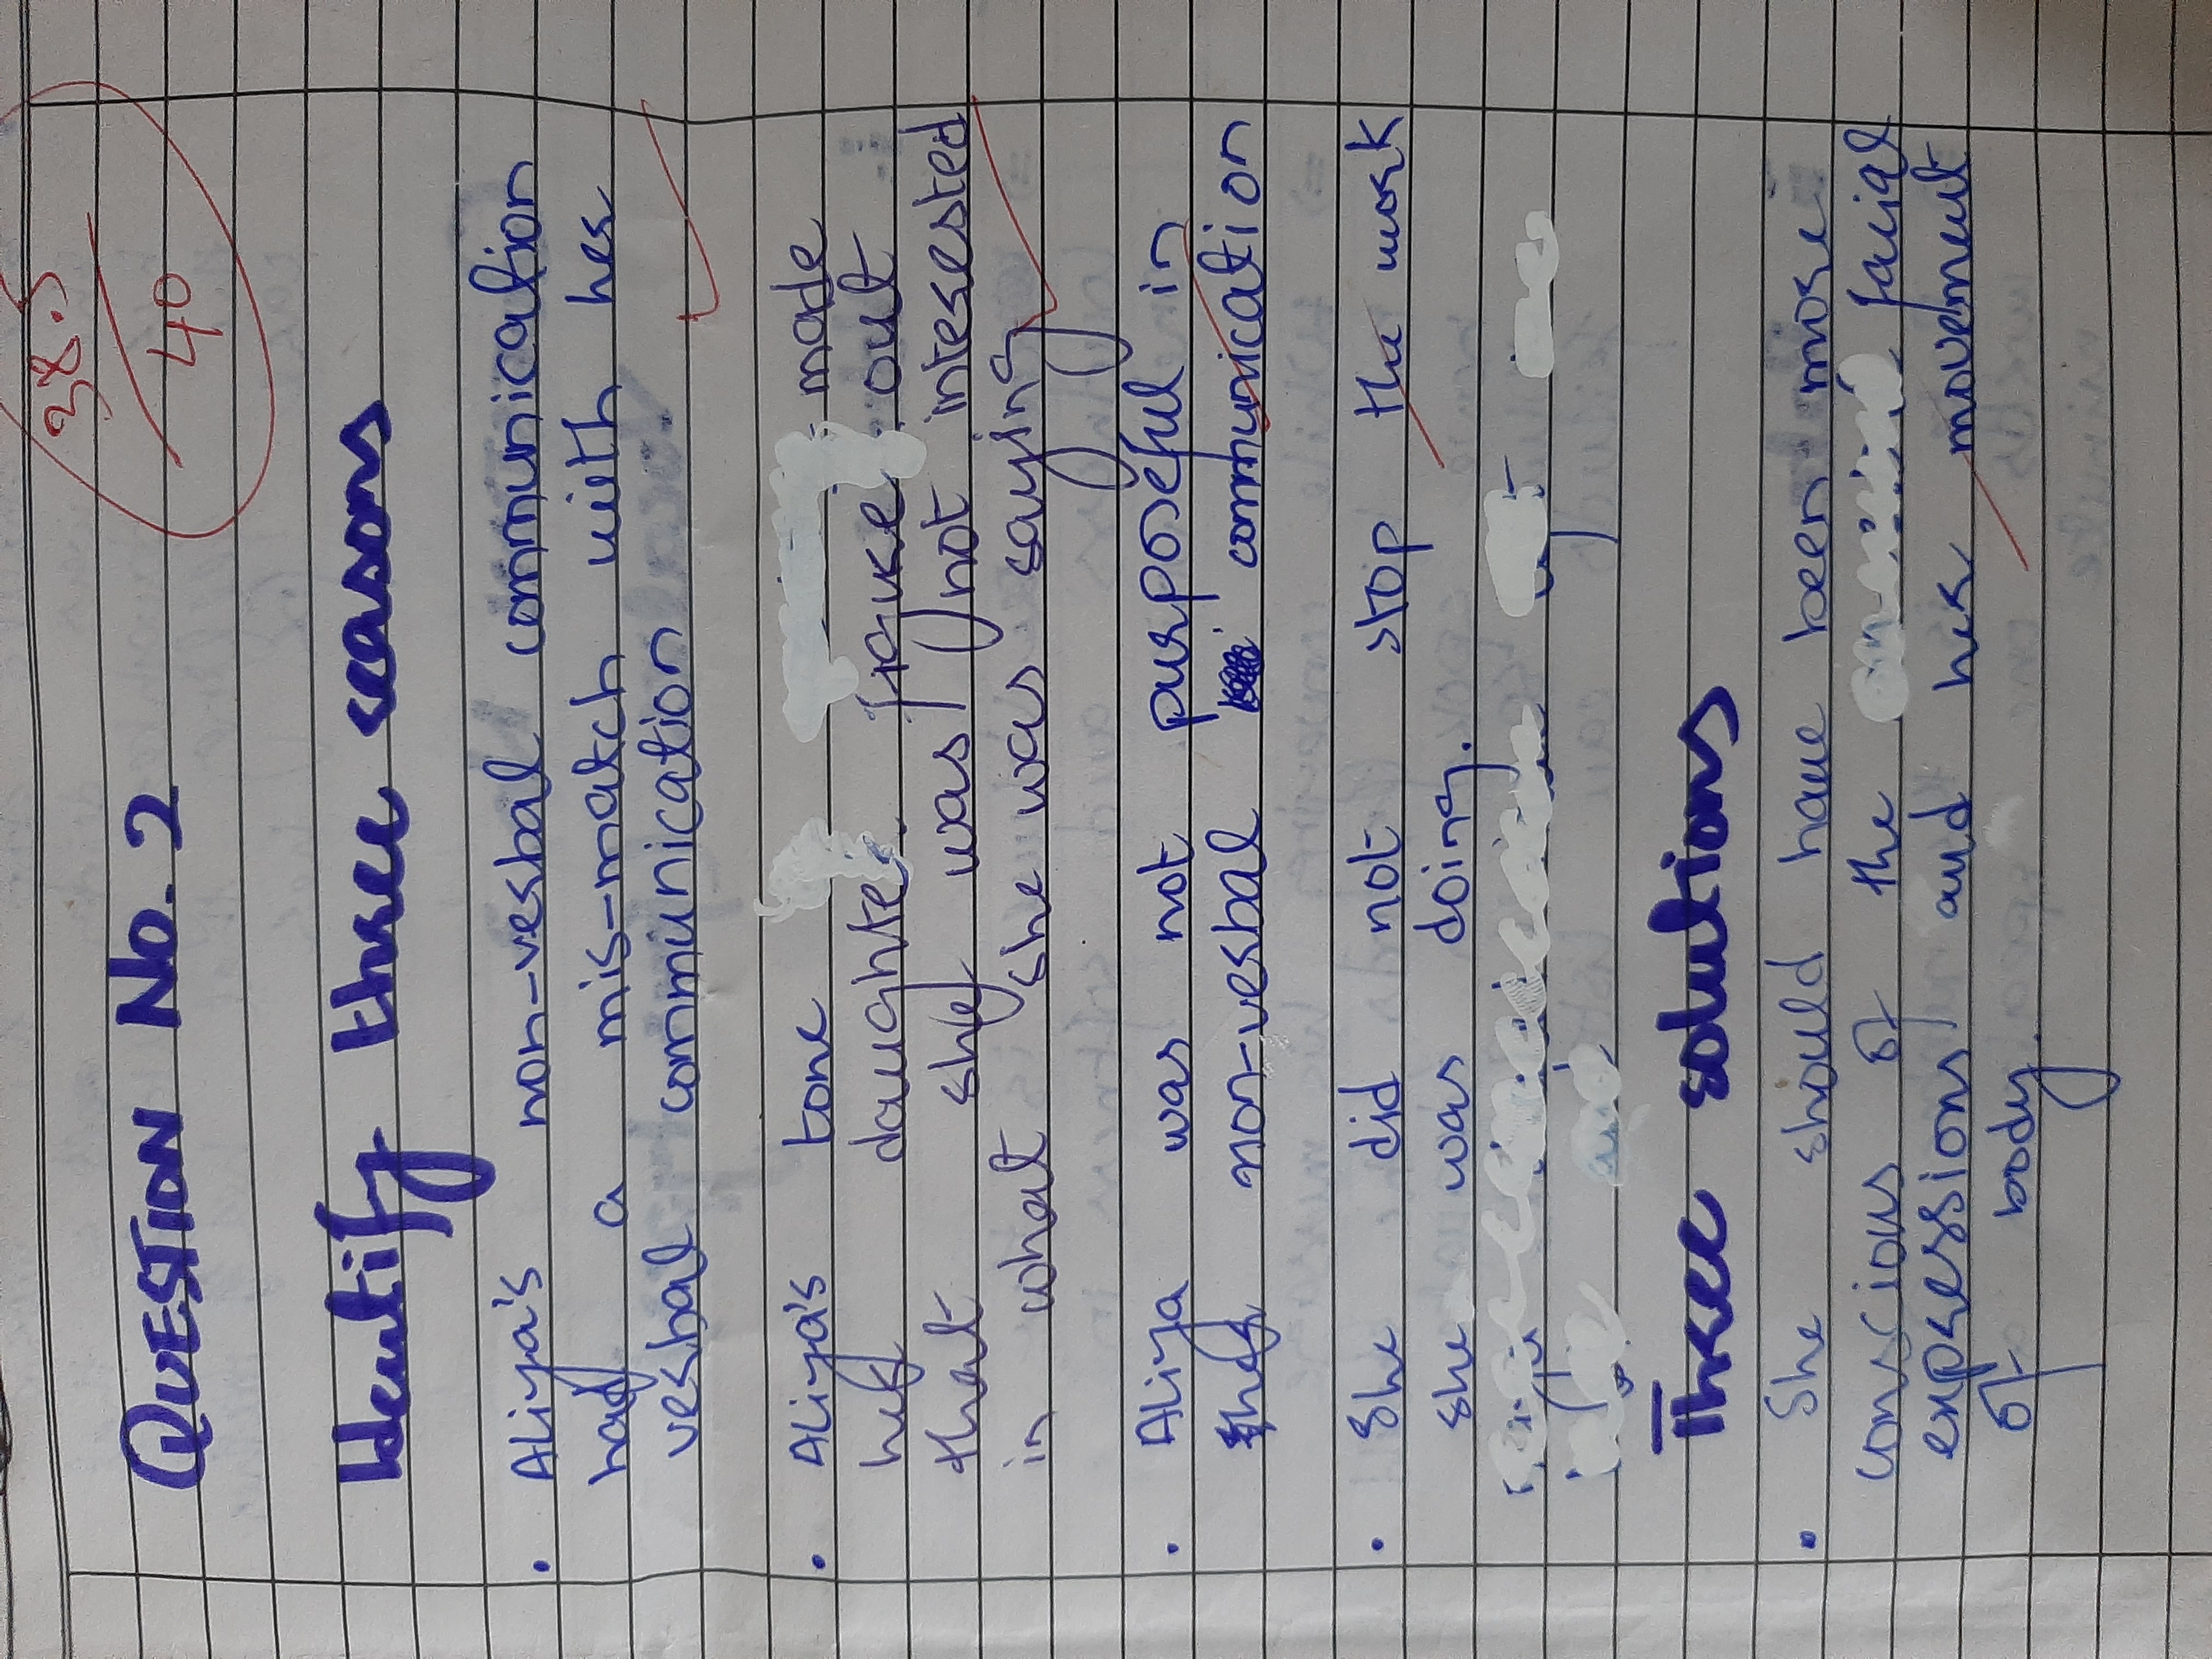 38.5
40
QUESTION No. 2
Identify three reasons
• Aliya's non-verbal communication
had a mis-match with her
verbal communication
• Aliya's tone made
her daughter out
that she was not interested
in what she was saying
• Aliya was not purposeful in
her non-verbal communication
• She did not stop the work
she was doing.
Three solutions
• She should have been more
conscious of the facial
expressions and her movement
of body.